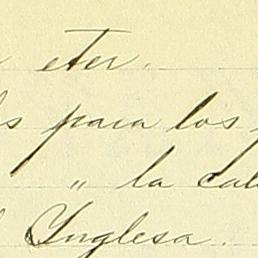 eter.
para los
" la
Inglesa.